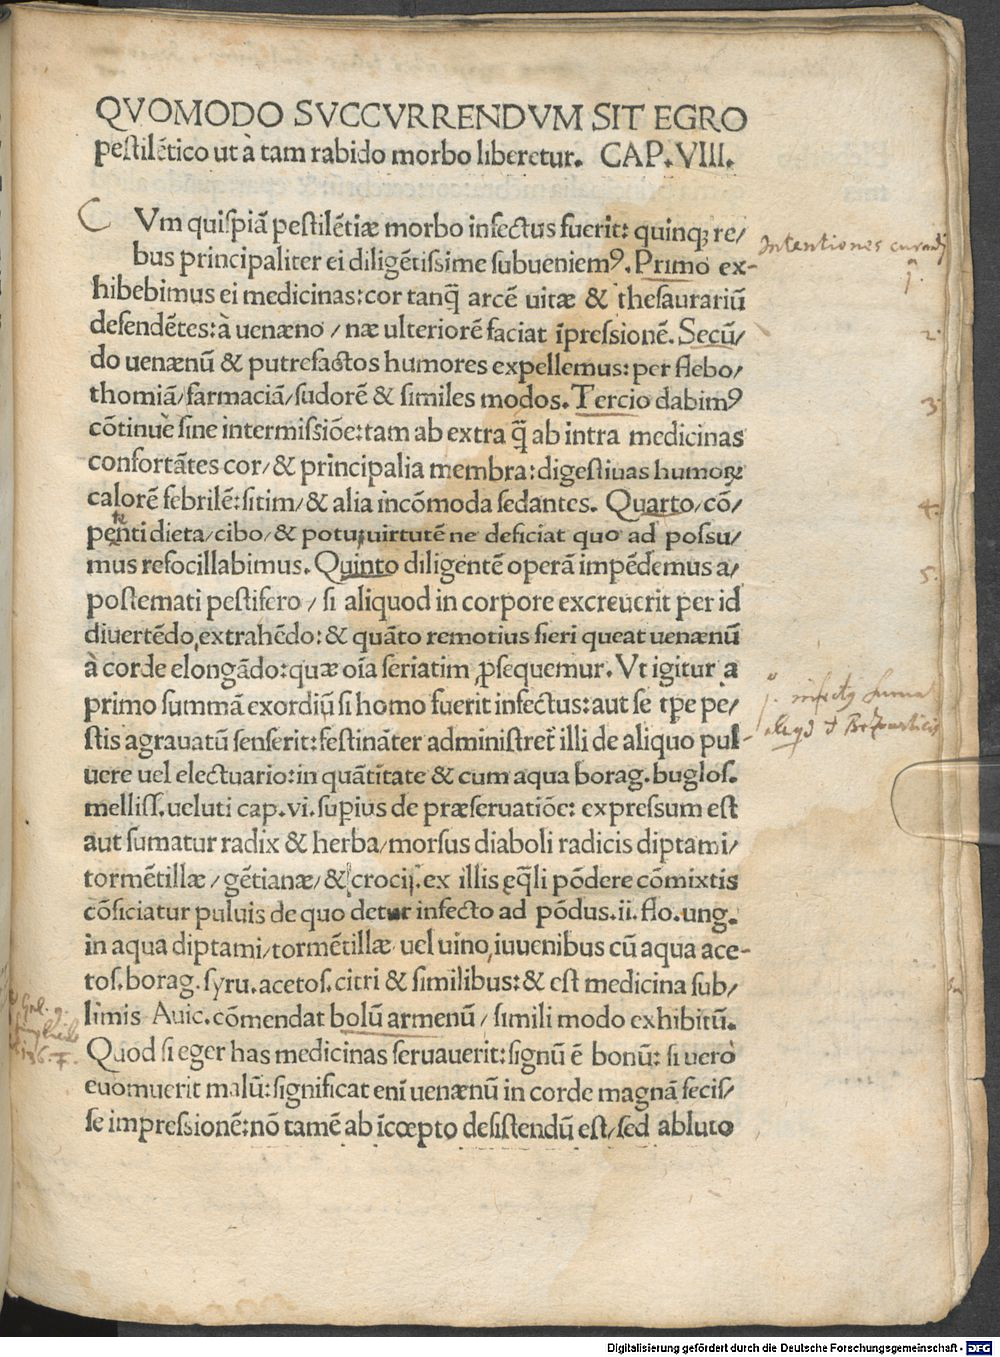 QVOMODO SVCCVRRENDVM SIT EGRO
pestilētico ut à tam rabido morbo liberetur. CAP. VIII.
C Vm quispiā pestilētiæ morbo infectus fuerit: quinqꝫ re/
bus principaliter ei diligētissime subueniemꝰ. Primo ex-
hibebimus ei medicinas: cor tanq̄ arcē uitæ & thesaurariū
defendētes: à uenæno / næ ulteriorē faciat īpressionē. Secū/
do uenænū & putrefactos humores expellemus: per flebo/
thomiā/farmaciā/sudorē & similes modos. Tercio dabimꝰ
cōtinuè sine intermissiōe: tam ab extra q̄ ab intra medicinas
confortātes cor/ & principalia membra: digestiuas humoꝝ
calorē febrilē: sitim/ & alia incōmoda sedantes. Quarto/cō/
te
penti dieta/cibo/ & potu, uirtutē ne deficiat quo ad possu/
mus refocillabimus. Quinto diligentē operā impēdemus a/
postemati pestifero / si aliquod in corpore excreuerit per id
diuertēdo, extrahēdo: & quāto remotius fieri queat uenænū
à corde elongādo: quæ oīa seriatim ꝓsequemur. Vt igitur a
primo summā exordiū si homo fuerit infectus: aut se tꝑe pe/
stis agrauatū senserit: festināter administret̄ illi de aliquo pul-
uere uel electuario: in quātitate & cum aqua borag. buglos.
melliss. ueluti cap. vi. suꝑius de præseruatiōe: expressum est
aut sumatur radix & herba/morsus diaboli radicis diptami/
tormētillæ / gētianæ/ & crocij. ex illis eq̄li pōdere cōmixtis
cōficiatur puluis de quo detur infecto ad pōdus. ii. flo. ung.
in aqua diptami/tormētillæ uel uino, iuuenibus cū aqua ace-
tos. borag. syru. acetos. citri & similibus: & est medicina sub/
limis Auic. cōmendat bolū armenū / simili modo exhibitū.
Quod si eger has medicinas seruauerit: signū ē bonū: si uero
euomuerit malū: significat enī uenænū in corde magnā fecis/
se impressionē: nō tamē ab īcœpto desistendū est/sed abluto
Intentiones curandi
1.
2.
3.
4.
5.
Digitalisierung gefördert durch die Deutsche Forschungsgemeinschaft - DFG